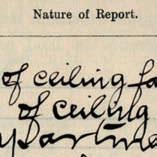 Nature of Report.
of ceiling fa
of ceiling
partme